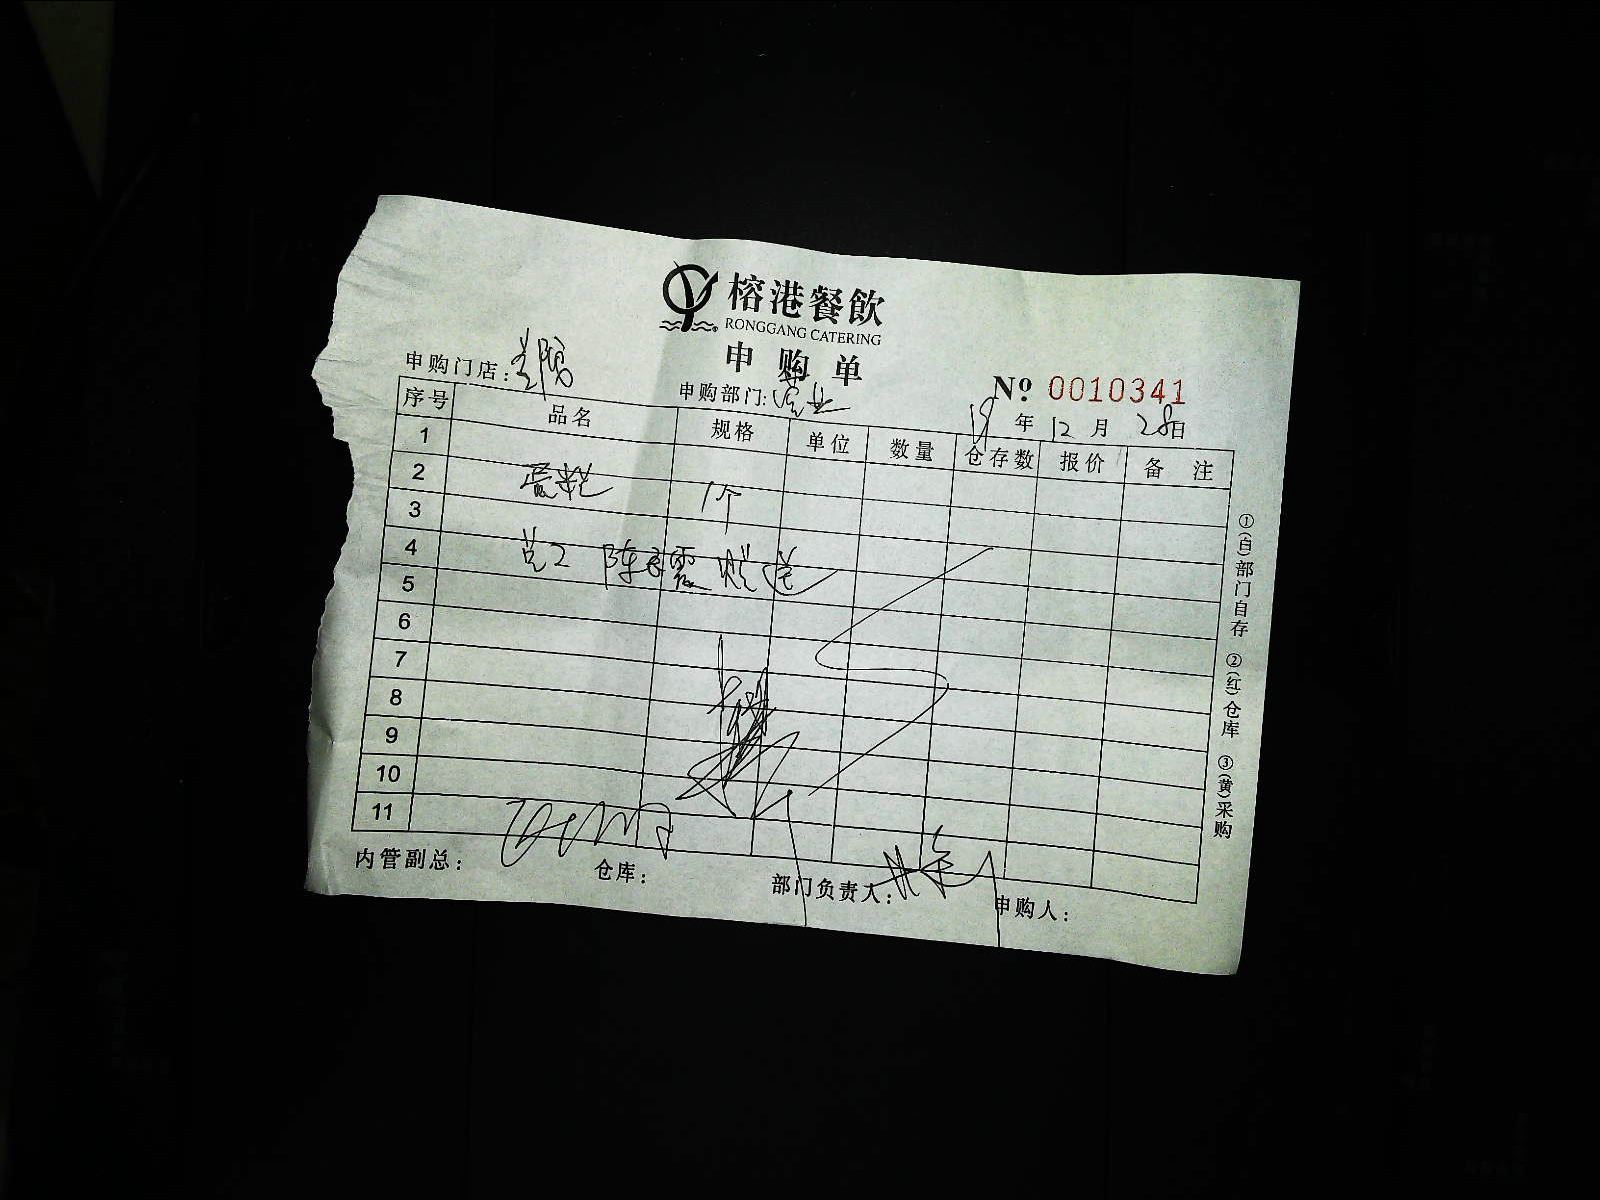 榕港餐飲
RONGGANG CATERING
申购单
申购门店:
申购部门: 营业
№ 0010341
19年12月28日
序号 品名 规格 单位 数量 仓存数 报价 备注
1
2 蛋糕 1个
3
4 员工 陈
5
6
7
8
9
10
11
内管副总: 仓库: 部门负责人: 申购人:
①(白)部门自存 ②(红)仓库 ③(黄)采购